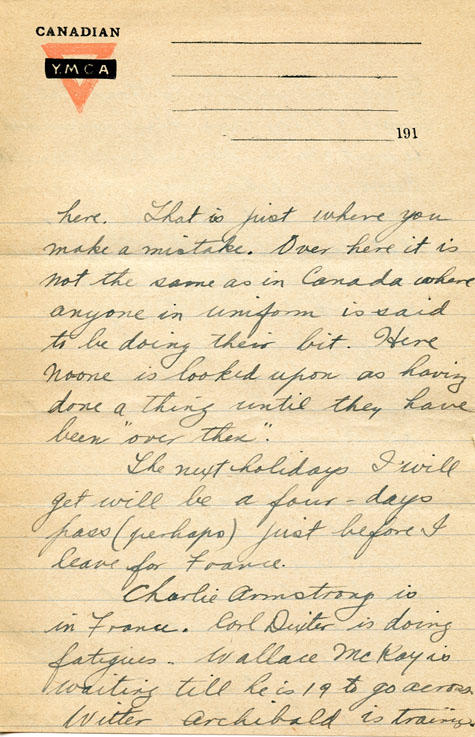 CANADIAN
Y.M.C.A
191
here. That is just where you
make a mistake. Over here it is
not the same as in Canada where
anyone in uniform is said
to be doing their bit. Here
noone is looked upon as having
done a thing until they have
been "over then".
The next holidays I will
get will be a four-days
pass (perhaps) just before I
leave for France.
Charlie Armstrong is
in France. Carl Dexter is doing
fatigues. Wallace McKay is
waiting till he is 19 to go across.
Witter Archibald is training